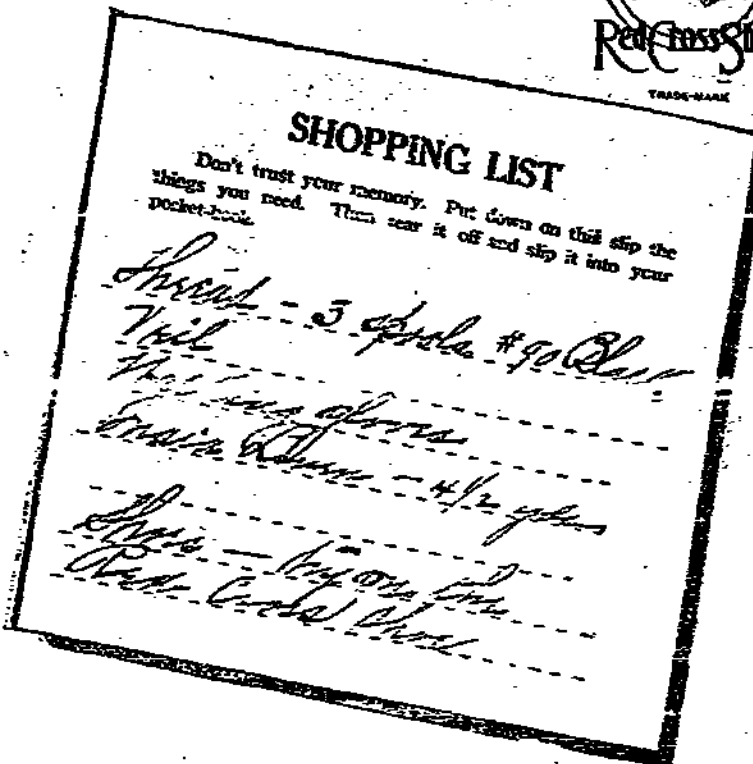 Red Cross Sh
TRADE-MARK
SHOPPING LIST
Don't trust your memory. Put down on this slip the
things you need. Then tear it off and slip it into your
pocket-book.
Thread - 3 spools #90 Black
Veil
gloves
- 4 1/2 yds
Shoes - try on the
Red Cross Shoe